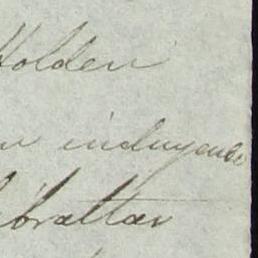 Holden
indulgence
Gibraltar